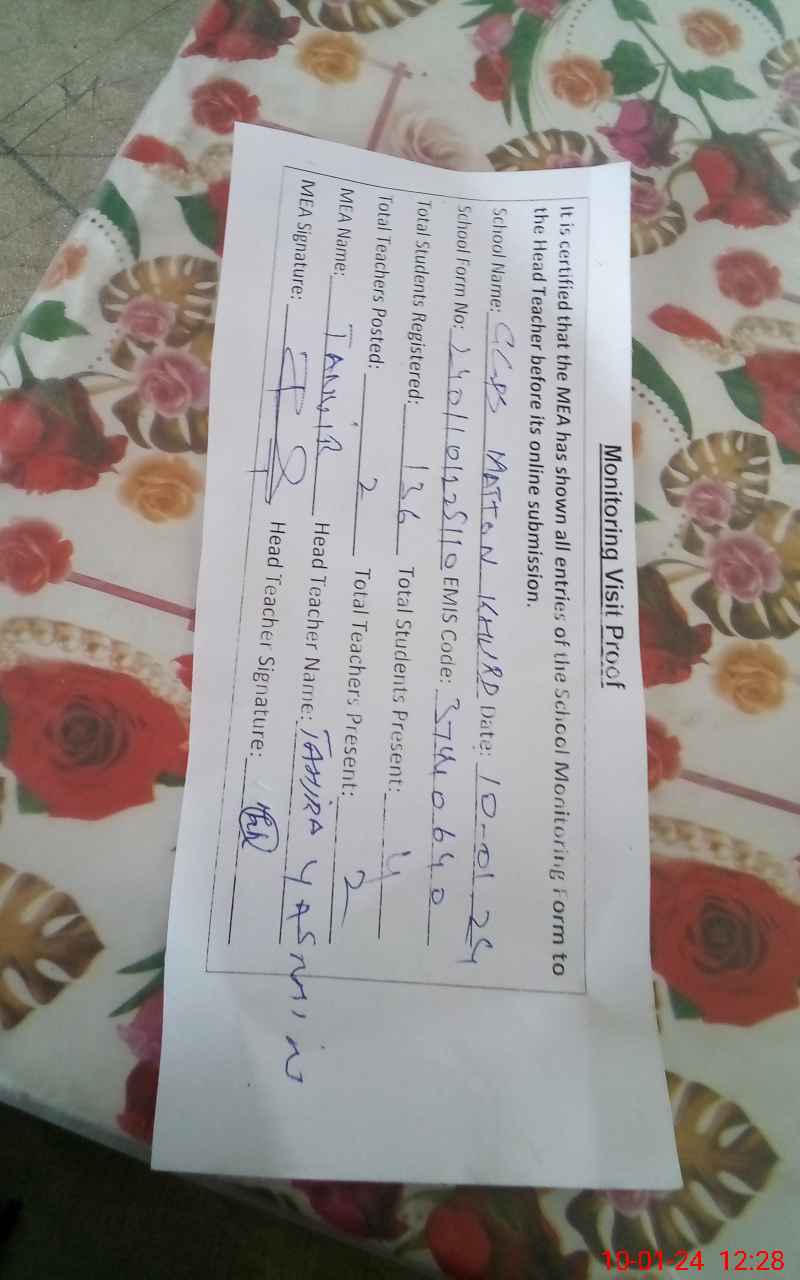 Monitoring Visit Proof
It is certified that the MEA has shown all entries of the School Monitoring Form to
the Head Teacher before its online submission.
School Name: GGPS MATTON KHURD Date: 10-01 24
School Form No: EMIS Code: 37440640
Total Students Registered: 136 Total Students Present: 4
Total Teachers Posted: 2 Total Teachers Present: 2
MEA Name: TANVIR Head Teacher Name: TAHIRA YASMIN
MEA Signature: Head Teacher Signature:
10-01-24 12:28